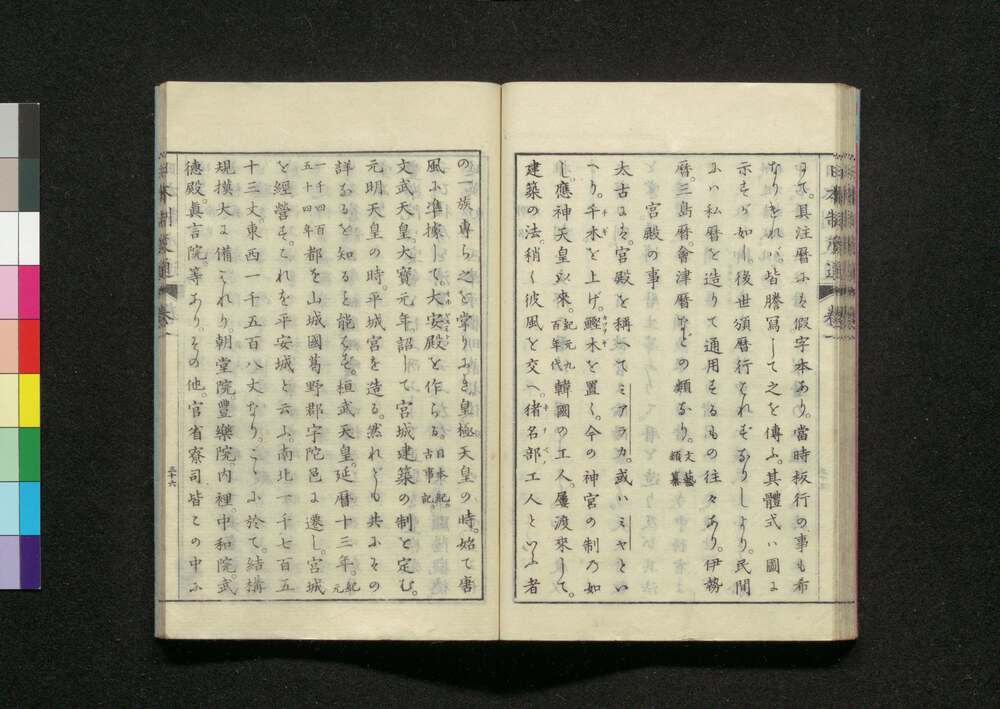 日本制度通 卷
にて。具注暦にも假字本あり。當時板行の事も希
なりければ。皆謄寫して之を傳ふ。其體式は圖に
示すが如し後世頒暦行はれずなりしより。民間
には私暦を造りて通用するもの往々あり。伊勢
暦。三島暦。會津暦などの類なり。文藝類纂
宮殿の事
太古は。宮殿を稱へてミアラカ。或はミヤとい
へり。千木を上げ。鰹木を置く。今の神宮の制の如
し。應神天皇以來。紀元九百年代韓國の工人。屢渡來して。
建築の法。稍く彼風を交へ。猪名部工人といふ者
の一族專ら之を掌りにき。皇極天皇の時。始て唐
風に準據して。大安殿を作らる。日本紀。古事記。
文武天皇。大寶元年詔して宮城建築の制を定む。
元明天皇の時。平城宮を造る。然れども共にその
詳なるを知ること能はず。桓武天皇。延暦十三年。紀元
一千四百五十四年都を山城國葛野郡宇陀邑に遷し。宮城
を經營す。これを平安城と云ふ。南北一千七百五
十三丈。東西一千五百八丈なり。こゝに於て。結構
規摸大に備はれり。朝堂院豐樂院。内裡。中和院。武
德殿。眞言院。等あり。その他。官省寮司皆この中に
日本制度通 卷
三十六